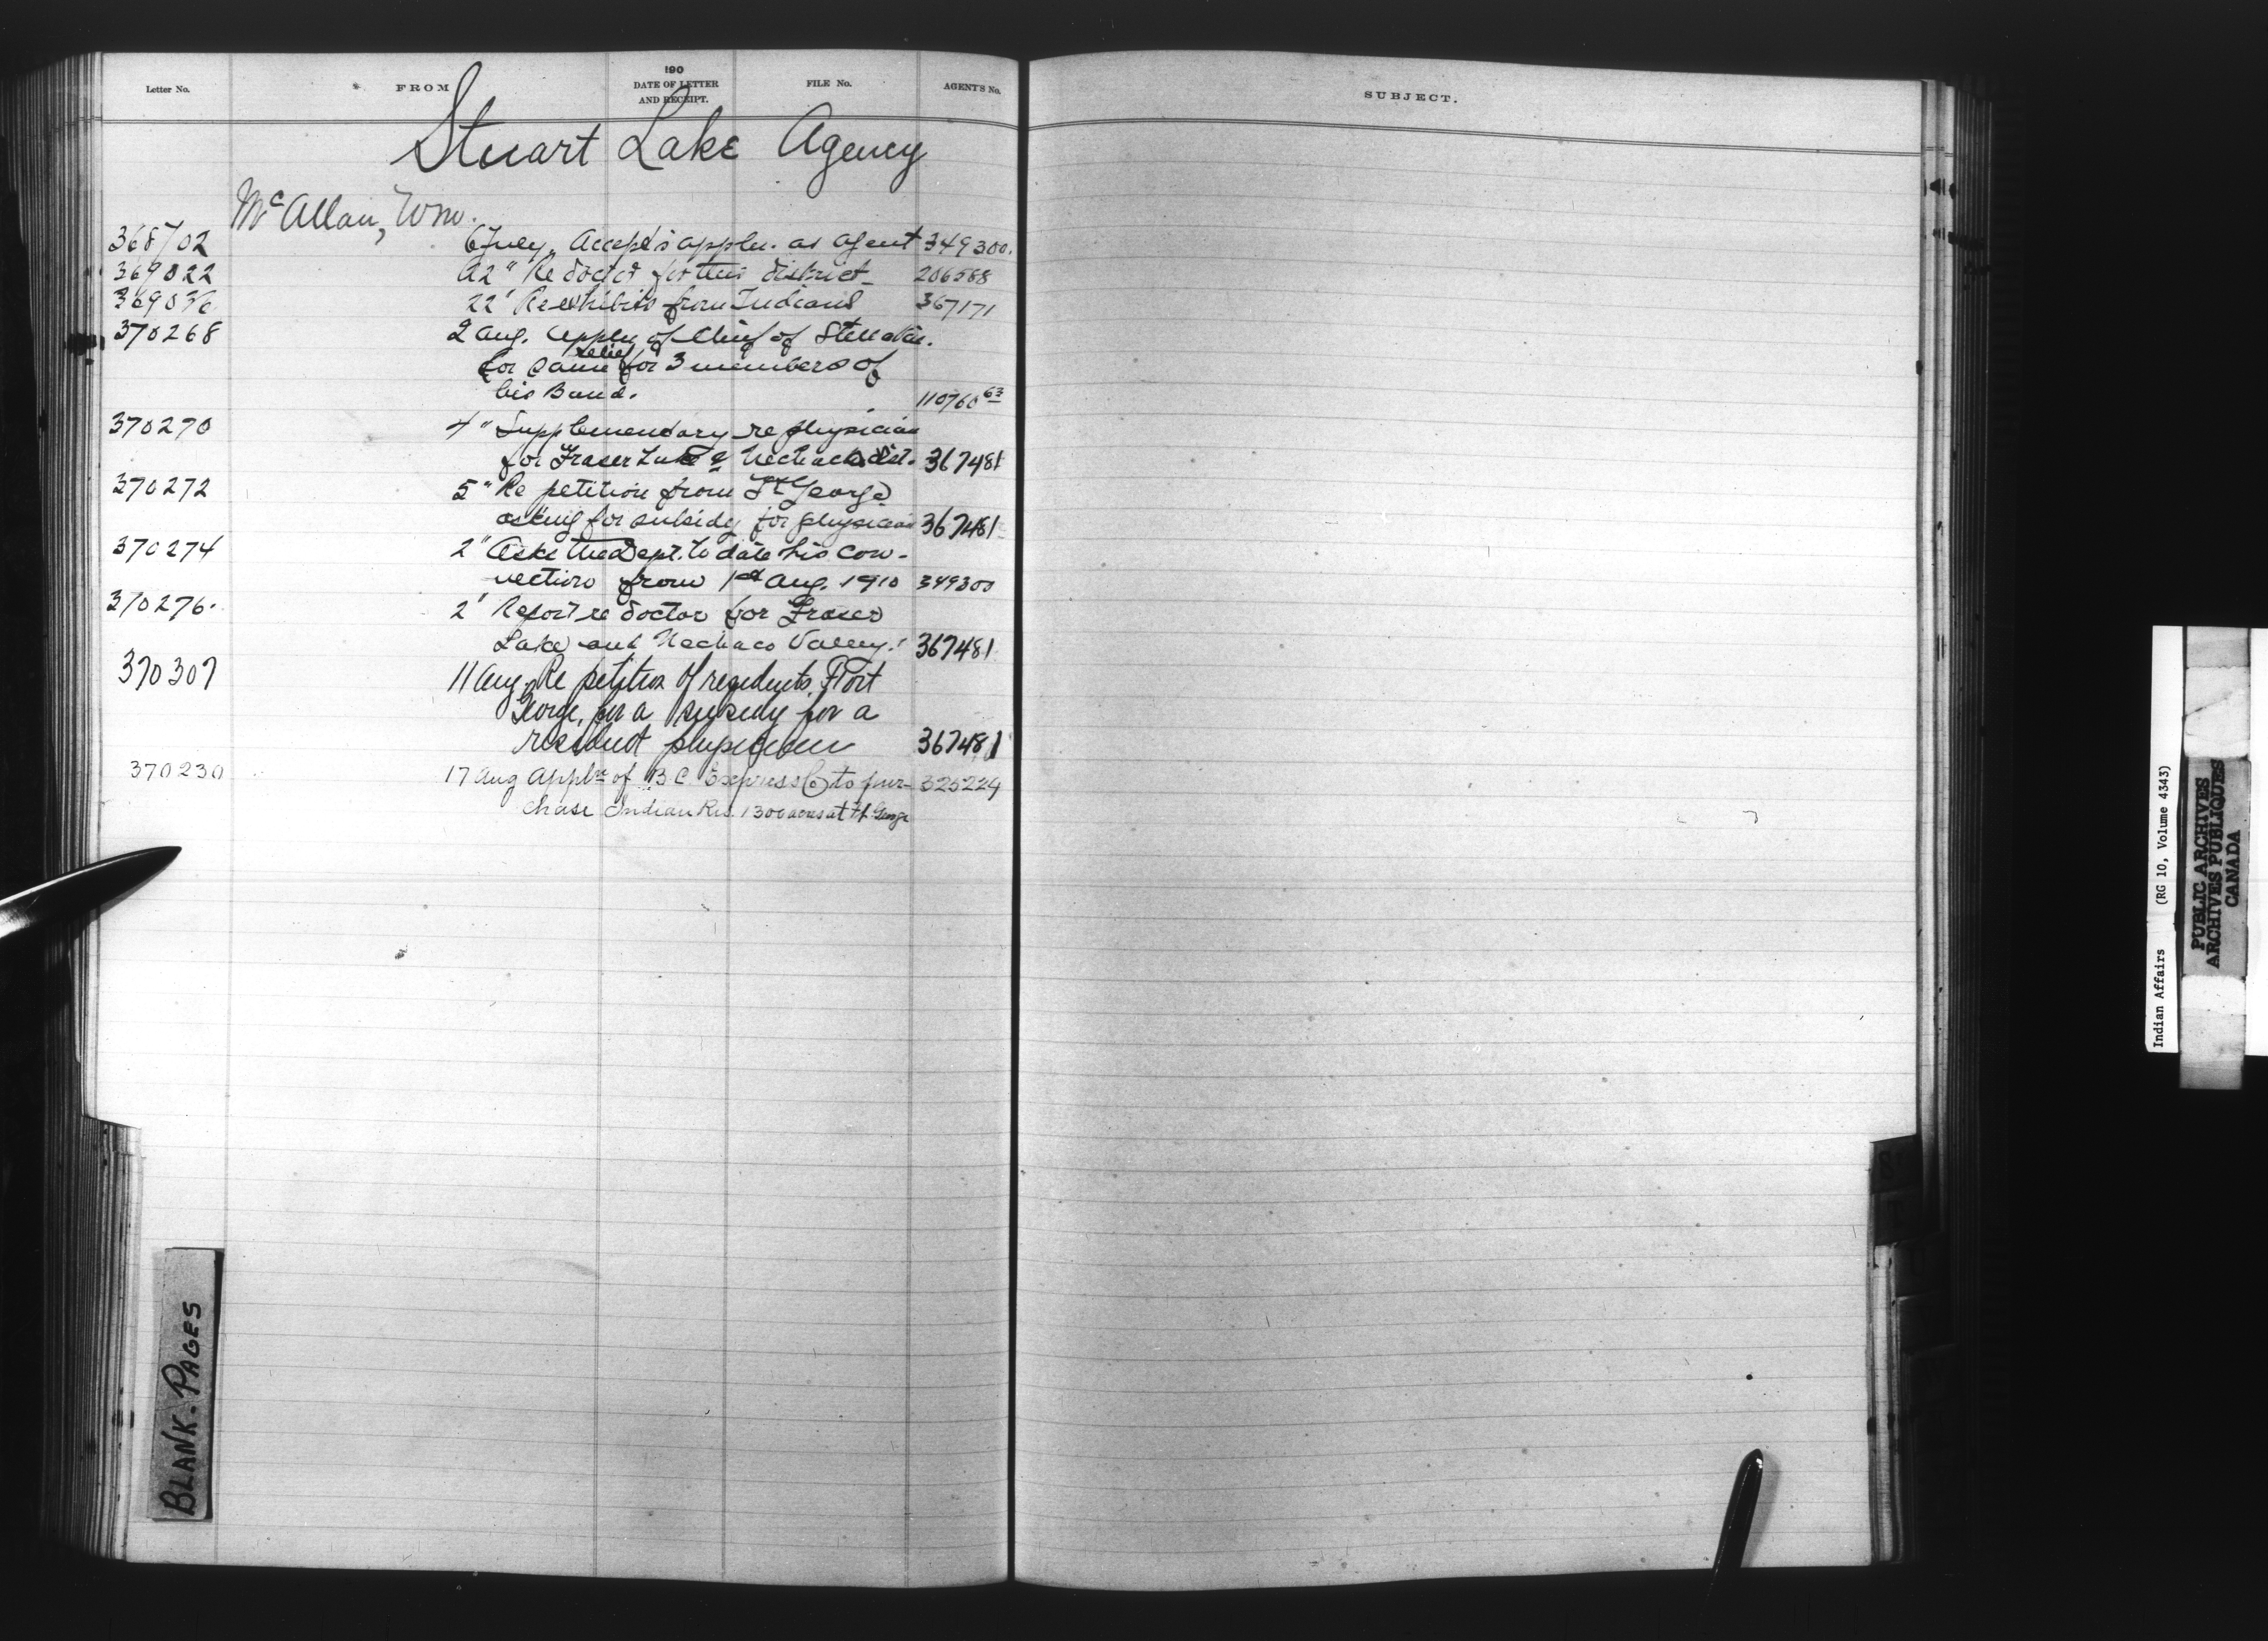 Letter No. FROM 190 DATE OF LETTER AND RECEIPT. FILE No. AGENT'S No.
Stuart Lake Agency
McAllan, Wm.
368702 6 July. Accepts appln. as agent 349300.
369022 22 " Re doctor for this district 206588
36903 22 " Re exhibits from Indians 367171
370268 2 Aug. Appln of Chief of Stella
relief
for same for 3 members of
his Band. 110760 63
370270 4 " Supplementary re physician
for Fraser Lake & Nechaco dist. 367481
370272 5 " Re petition from Ft George
asking for subsidy for physician 367481
370274 2 " Asks the Dept. to date his con-
nection from 1st Aug. 1910 349300
370276. 2 " Report re doctor for Fraser
Lake and Nechaco Valley. 367481
370307 11 Aug. Re petition of residents, Fort
George, for a subsidy for a
resident physician 367481
370230 17 Aug Appln of B.C. Express Co to pur- 325224
chase Indian Res. 1300 acres at Ft. George
BLANK-PAGES
SUBJECT.
Indian Affairs (RG 10, Volume 4343)
PUBLIC ARCHIVES
ARCHIVES PUBLIQUES
CANADA